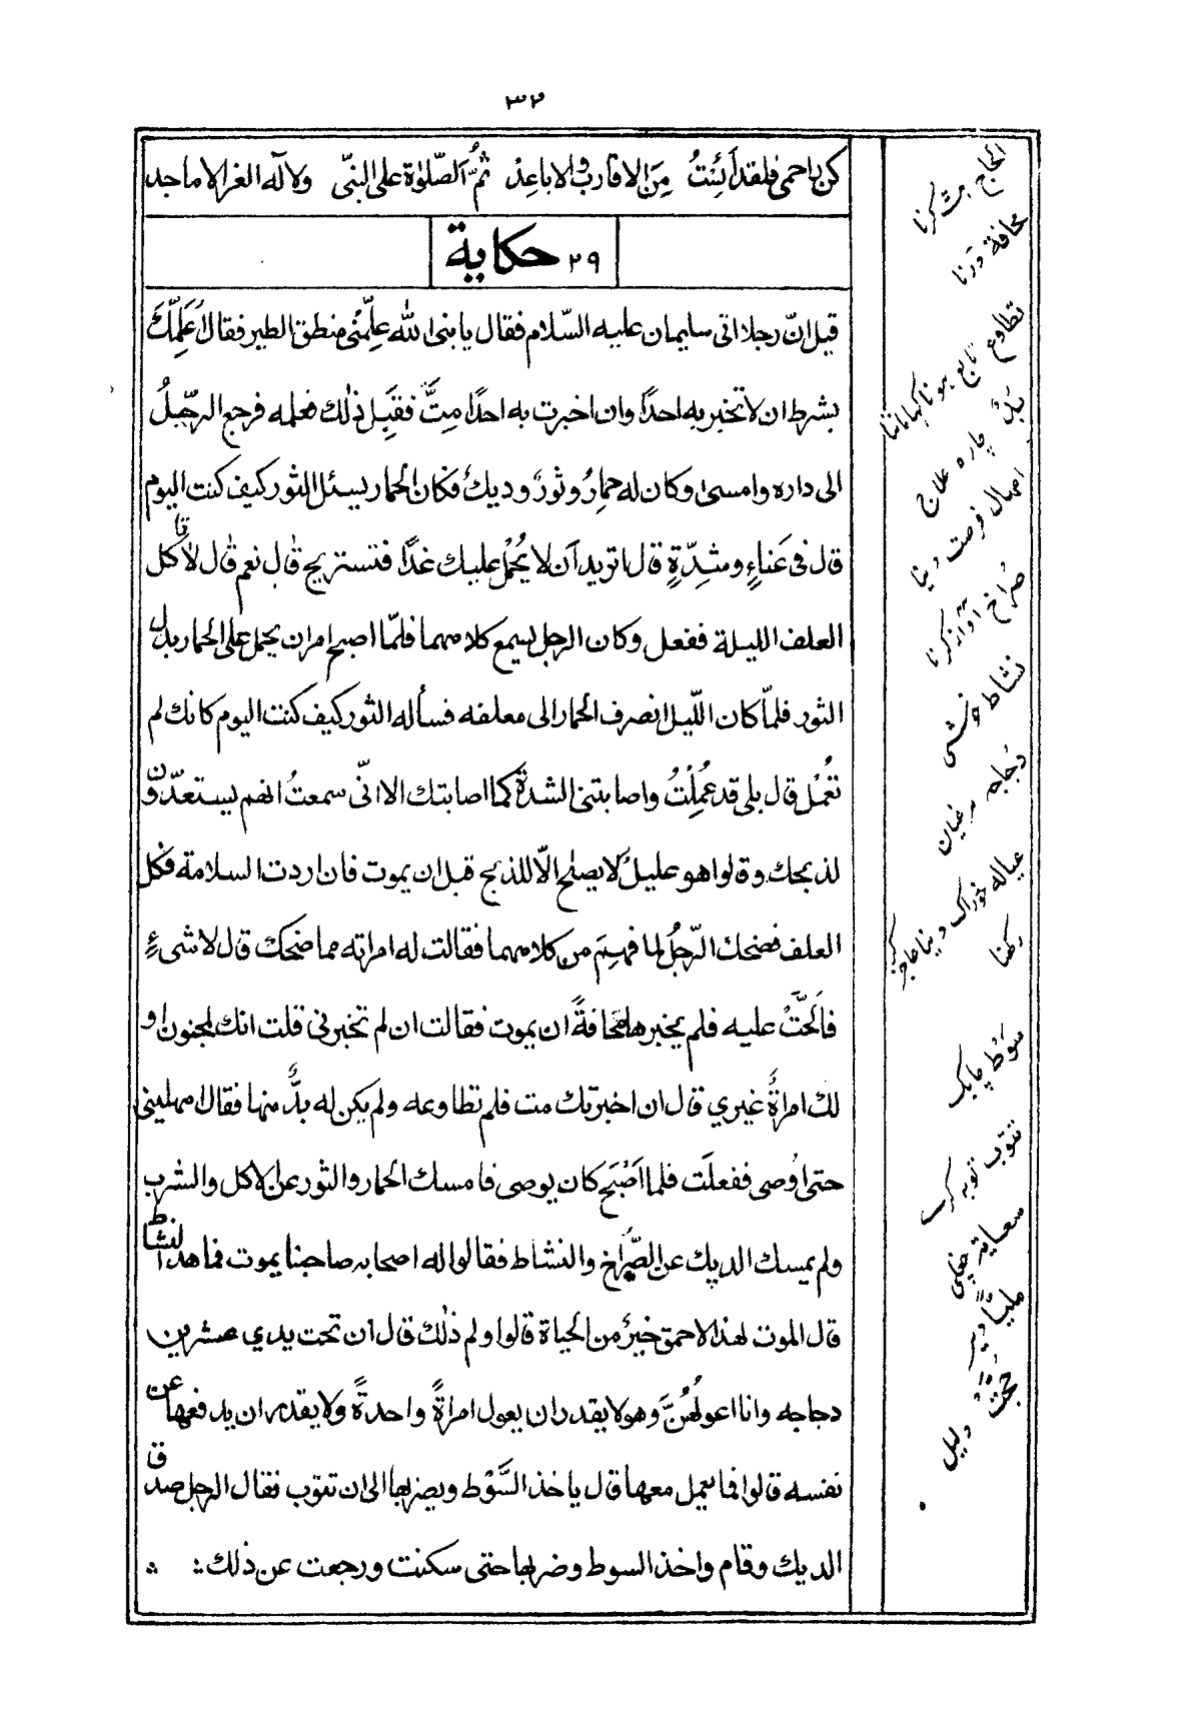 ٣٢
كن راحمى فلقد أَئِسْتُ مِنَ الاقارب والاباعِدْ ثمَّ الصّلوٰة على النبىّ ولاله الغر الاماجد
٢٩ حكاية
قيل انّ رجلا اتى سليمان عليه السّلام فقال يا نبى الله علِّمْنى منطق الطير فقال اُعَلِّمُكَ
بشرط ان لا تخبر به احدًا وان اخبرت به احدًا مِتَّ فقَبِل ذٰلك فعلمه فرجع الرّجلُ
الى داره وامسىٰ وكان له حِمارٌ وثورٌ وديكٌ فكان الحمار يسئل الثور كيف كنت اليوم
قال فى عَناءٍ وشِدّةٍ قال اتريد اَن لا يُحْمل عليك غدًا فتستريح قال نعم قال لا تأكل
العلف الليلة ففعل وكان الرجل يسمع كلامهما فلمّا اصبح امر ان يحمل على الحمار بدل
الثور فلمّا كان اللّيل انصرف الحمار الى معلفه فسأله الثور كيف كنت اليوم كانك لم
تُعْمَل قال بلى قد عُمِلْتُ واصابتنى الشدة كما اصابتك الا انّى سمعتُ انهم يستعدّون
لذبحك وقالوا هو عليلٌ لا يصلح الّا للذبح قبل ان يموت فان اردت السلامة فكل
العلف فضحك الرّجُل لما فهِمَ من كلامهما فقالت له امراته مما ضحكت قال لا شىءٍ
فاَلَحَّتْ عليه فلم يخبرها مخافةً ان يموت فقالت ان لم تخبرنى قلت انك لمجنون او
لك امراةٌ غيري قال ان اخبرتك مت فلم تطاوعه ولم يكن له بدٌّ منها فقال امهلينى
حتى اُوصى ففعلَت فلما اَصْبَحَ كان يوصى فامسك الحمار والثور عن الاكل والشرب
ولم يمسك الديك عن الصُّراخ والنشاط فقالوا له اصحابه صاحبنا يموت فما هذا النشاط
قال الموت لهذا الاحمق خيرٌ من الحياة قالوا ولم ذٰلك قال ان تحت يدي عشرين
دجاجه وانا اعولُهُنَّ وهو لا يقدر ان يعول امراةً واحدةً ولا يقدر ان يدفعها عن
نفسه قالوا فما يعمل معها قال ياخذ السَّوْط ويضربها الى ان تتوب فقال الرجل صدق
الديك وقام واخذ السوط وضربها حتى سكنت ورجعت عن ذلك
الحاح ہٹ کرنا
مخافة ڈرنا
تطاوع تابع ہونا کہا ماننا
بُدّ چارہ علاج
امهال فرصت دینا
صُراخ آواز کرنا
نشاط خوشی
دجاجه مرغیاں
عياله خوراک دینا
رکھنا
سَوْط چابک
تتوب توبہ کرے
سعاية چغلی
مليّاً دیر
حجة دلیل